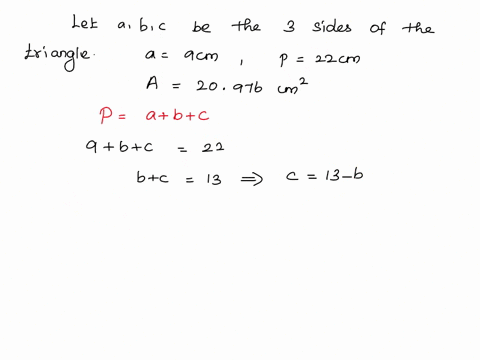 Let a, b, c be the 3 sides of the
triangle. a = 9cm, p = 22cm
A = 20.976 cm²
P = a+b+c
9+b+c = 22
b+c = 13 ⟹ c = 13-b